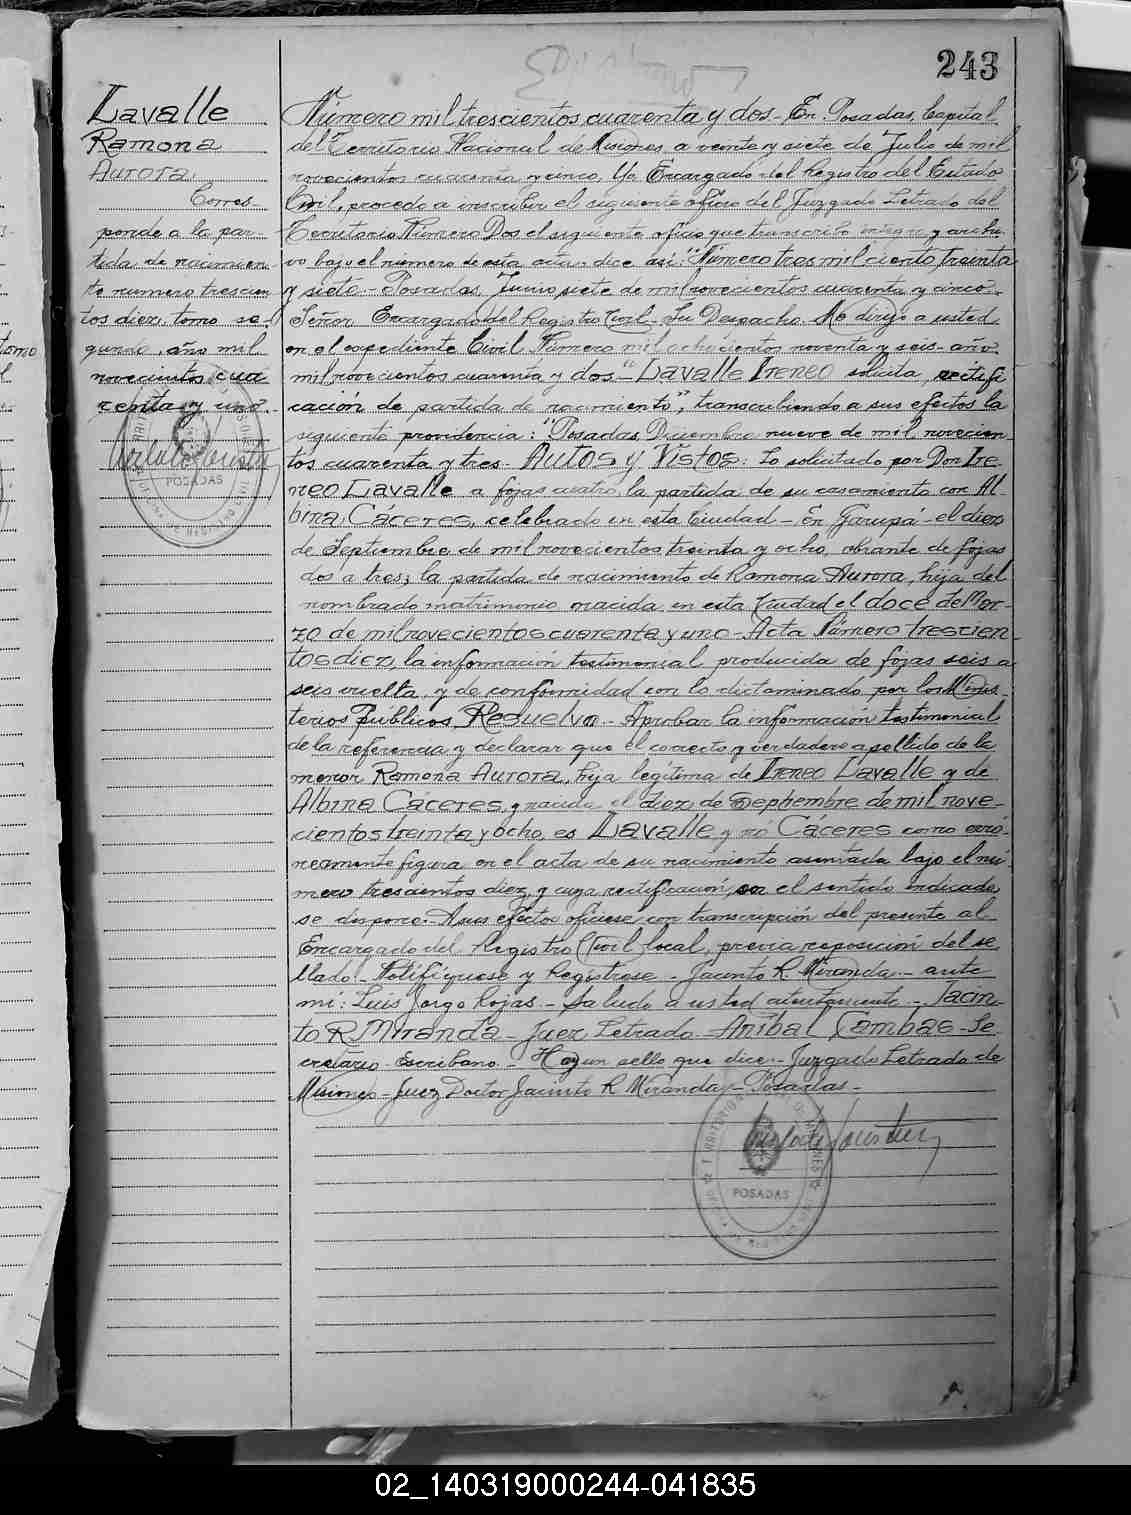 243
Lavalle
Ramona
Aurora.
Corres-
ponde a la par-
tida de nacimien-
to numero trescien
tos diez, tomo se-
gundo, año mil
novecientos cua
renta y uno.
POSADAS
Número mil trescientos cuarenta y dos - En Posadas, Capital
del Territorio Nacional de Misiones a veinte y siete de Julio de mil
novecientos cuarenta y cinco, Yo Encargado del Registro del Estado
Civil, procedo a inscribir el siguiente oficio del Juzgado Letrado del
Territorio Número Dos el siguiente oficio que transcribo integro y archi-
vo bajo el número de esta acta, dice asi: "Número tres mil ciento treinta
y siete - Posadas, Junio siete de mil novecientos cuarenta y cinco.
Señor Encargado del Registro Civil - Su Despacho. Me dirijo a usted
en el expediente Civil Número mil ochocientos noventa y seis - año
mil novecientos cuarenta y dos - "Lavalle Ireneo solicita, rectifi
cación de partida de nacimiento", transcribiendo a sus efectos la
siguiente providencia: "Posadas, Diciembre nueve de mil novecien
tos cuarenta y tres - Autos y Vistos: Lo solicitado por Don Ire-
neo Lavalle a fojas cuatro, la partida de su casamiento con Al-
bina Cáceres, celebrado en esta Ciudad - En Garupá - el diez
de Septiembre de mil novecientos treinta y ocho, obrante de fojas
dos a tres; la partida de nacimiento de Ramona Aurora, hija del
nombrado matrimonio nacida en esta Ciudad el doce de Mar-
zo de mil novecientos cuarenta y uno - Acta Número trescien-
tos diez, la información testimonial producida de fojas seis a
seis vuelta, y de conformidad con lo dictaminado por los Minis-
terios Públicos, Resuelvo - Aprobar la información testimonial
de la referencia y declarar que el correcto y verdadero apellido de la
menor Ramona Aurora, hija legítima de Ireneo Lavalle y de
Albina Cáceres, y nacida el diez de Septiembre de mil nove-
cientos treinta y ocho, es Lavalle y nó Cáceres como erró-
neamente figura en el acta de su nacimiento asentada bajo el nú-
mero trescientos diez, y cuya rectificación, en el sentido indicado
se dispone. A sus efectos ofíciese con transcripción del presente al
Encargado del Registro Civil local, previa reposición del se
llado - Notifíquese y Regístrese - Jacinto R. Miranda - ante
mi: Luis Jorge Rojas - Saludo a usted atentamente - Jacin-
to R Miranda - Juez Letrado - Aníbal Cambas - Se
cretario - Escribano - Hay un sello que dice - Juzgado Letrado de
Misiones - Juez Doctor Jacinto R Miranda - Posadas -
POSADAS
02_140319000244-041835